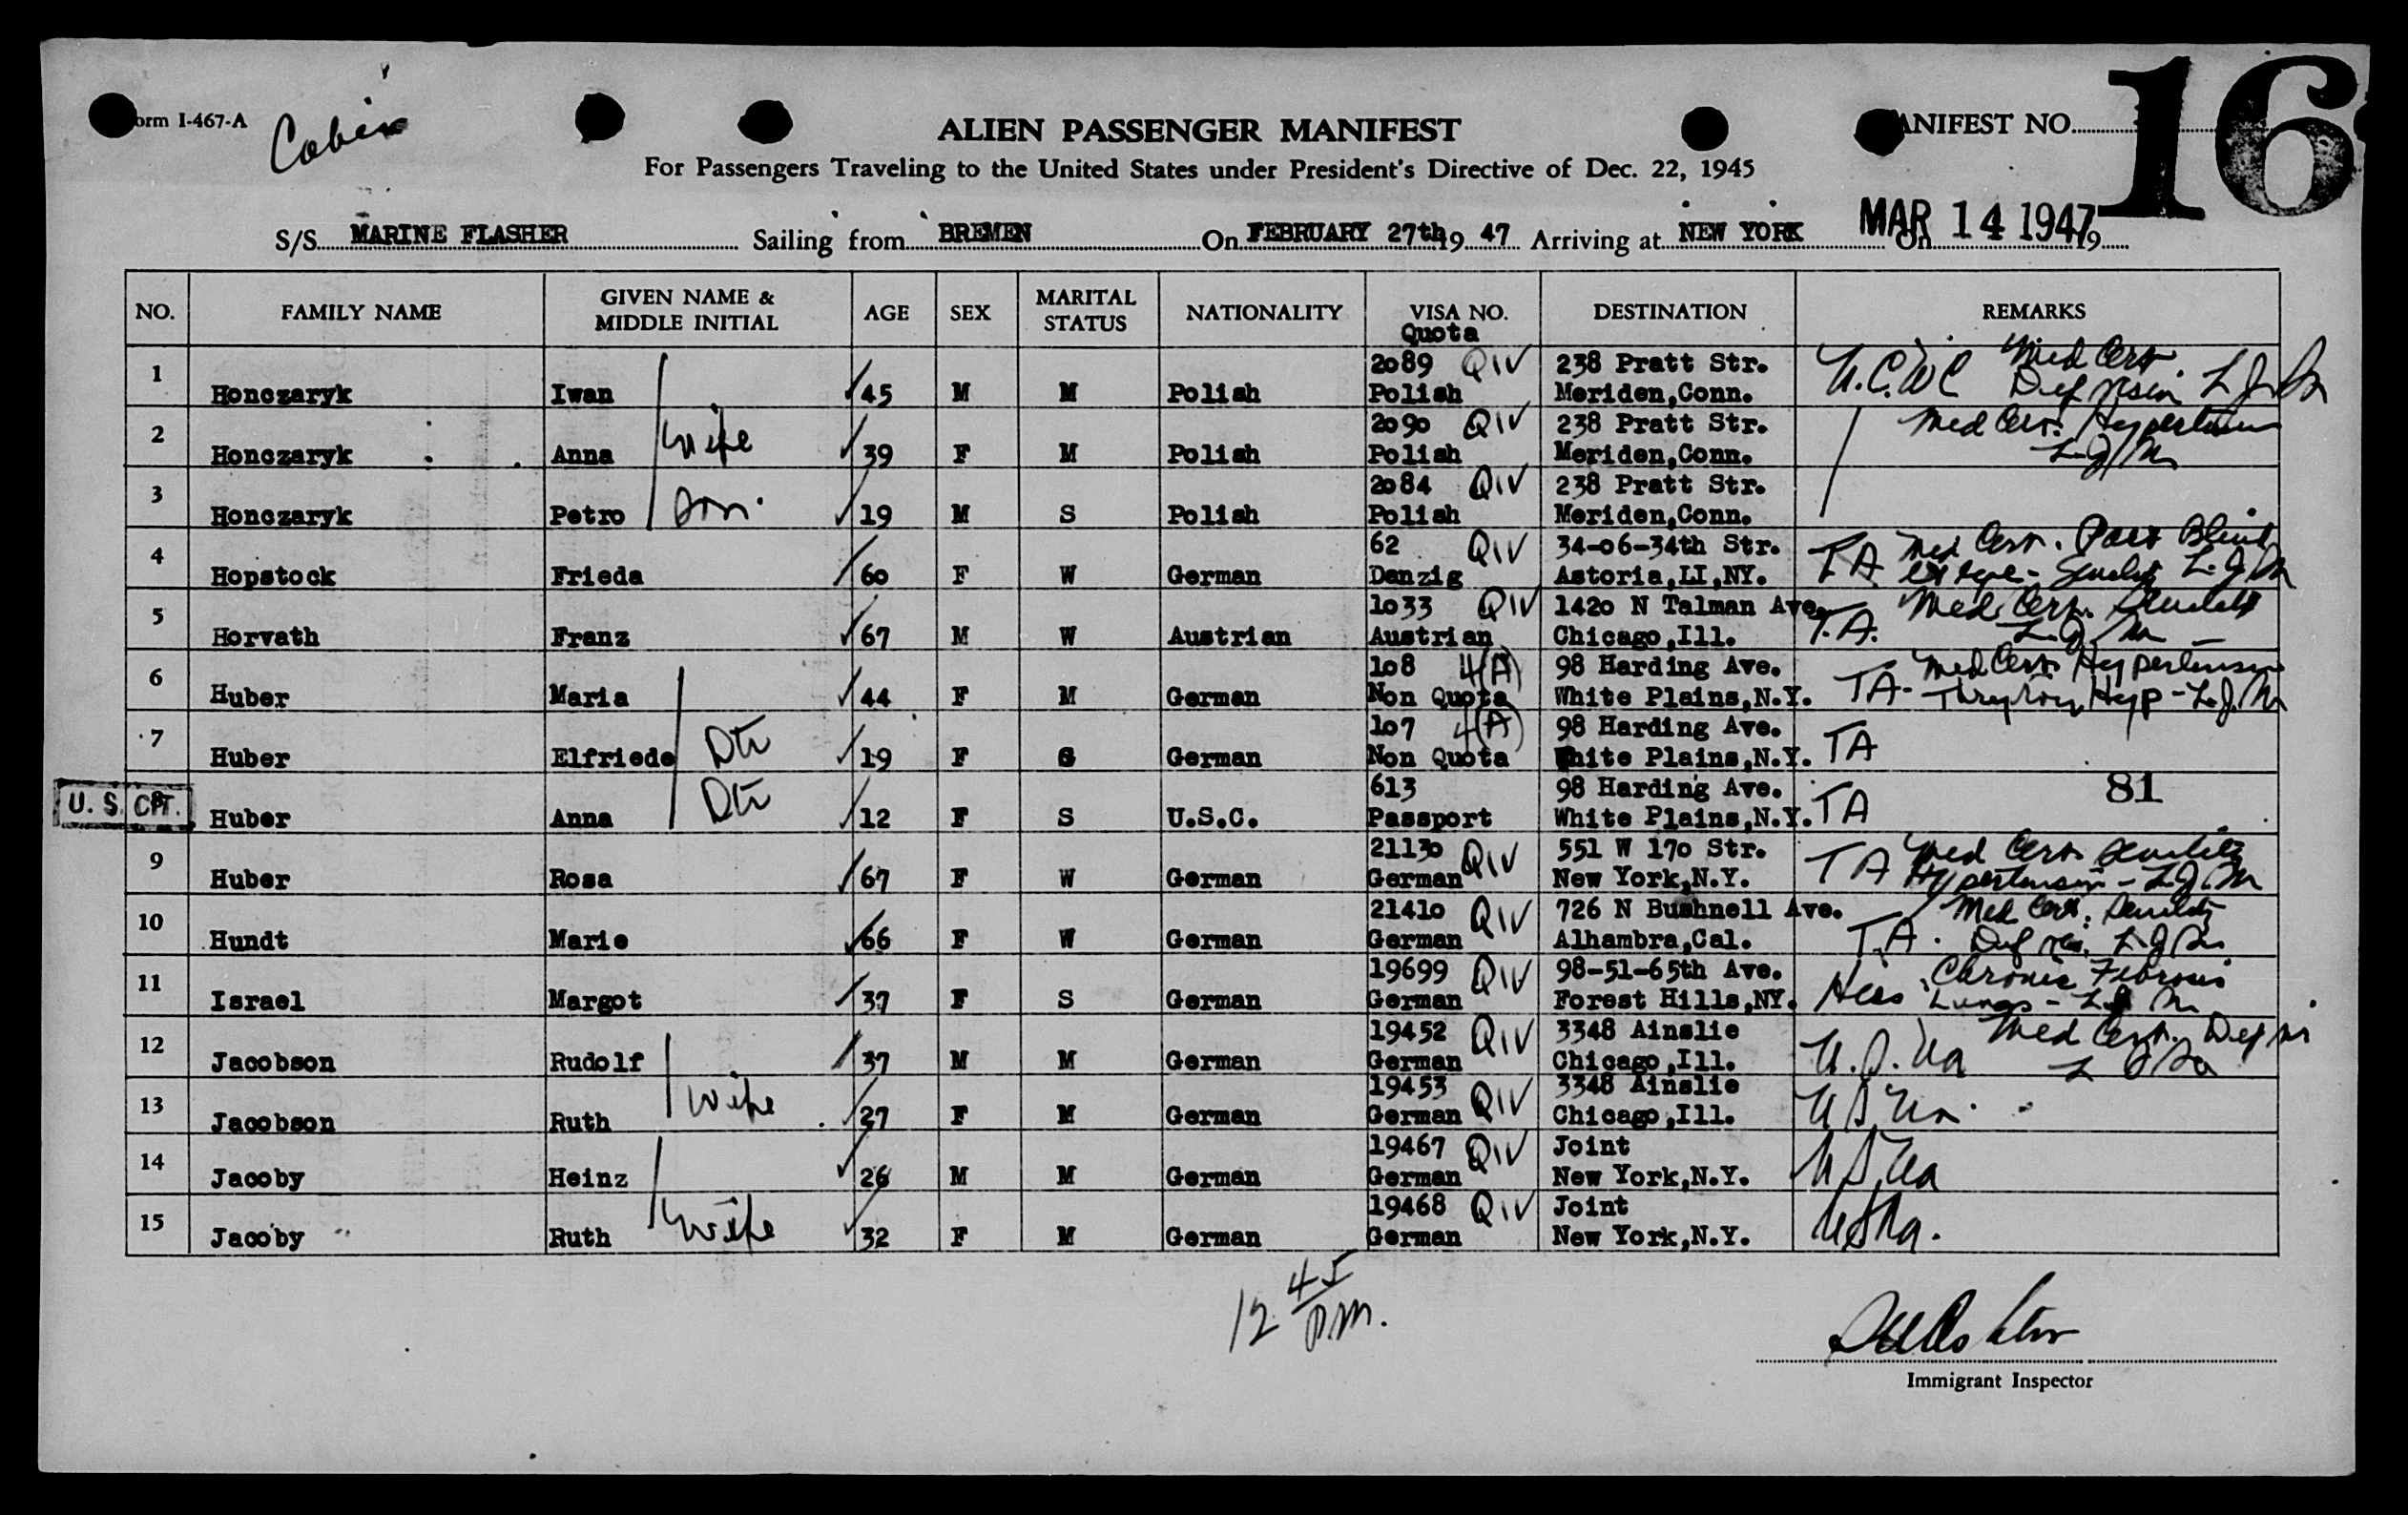 Form I-467-A
Cabin
ALIEN PASSENGER MANIFEST
MANIFEST NO. 16
For Passengers Traveling to the United States under President's Directive of Dec. 22, 1945
S/S MARINE FLASHER Sailing from BREMEN On FEBRUARY 27th 19 47 Arriving at NEW YORK On MAR 14 1947 19
NO. FAMILY NAME GIVEN NAME & MIDDLE INITIAL AGE SEX MARITAL STATUS NATIONALITY VISA NO. Quota DESTINATION REMARKS
1 Honczaryk Iwan 45 M M Polish 2089 QIV Polish 238 Pratt Str. Meriden,Conn. N.C.W.C Med Cert.
2 Honczaryk Anna wife 39 F M Polish 2090 QIV Polish 238 Pratt Str. Meriden,Conn. Med Cert. Hypertension
3 Honczaryk Petro son 19 M S Polish 2084 QIV Polish 238 Pratt Str. Meriden,Conn.
4 Hopstock Frieda 60 F W German 62 QIV Danzig 34-06-34th Str. Astoria,LI,NY. TA Med Cert. Blind
5 Horvath Franz 67 M W Austrian 1033 QIV Austrian 1420 N Talman Ave. Chicago,Ill. T.A. Med Cert. Senility
6 Huber Maria 44 F M German 108 4(A) Non Quota 98 Harding Ave. White Plains,N.Y. TA- Med Cert Hypertension
7 Huber Elfriede Dtr 19 F S German 107 4(A) Non Quota 98 Harding Ave. White Plains,N.Y. TA
U. S. CIT. 8 Huber Anna Dtr 12 F S U.S.C. 613 Passport 98 Harding Ave. White Plains,N.Y. TA 81
9 Huber Rosa 67 F W German 21130 QIV German 551 W 170 Str. New York,N.Y. TA Med Cert Senility Hypertension - L.J.M
10 Hundt Marie 66 F W German 21410 QIV German 726 N Bushnell Ave. Alhambra,Cal. T.A. Med Cert. Senility
11 Israel Margot 37 F S German 19699 QIV German 98-51-65th Ave. Forest Hills,NY. Hias Chronic Fibrosis Lungs -
12 Jacobson Rudolf 37 M M German 19452 QIV German 3348 Ainslie Chicago,Ill. Med Cert.
13 Jacobson Ruth wife 27 F M German 19453 QIV German 3348 Ainslie Chicago,Ill.
14 Jacoby Heinz 26 M M German 19467 QIV German Joint New York,N.Y.
15 Jacoby Ruth wife 32 F M German 19468 QIV German Joint New York,N.Y.
12 45 P.M.
Immigrant Inspector